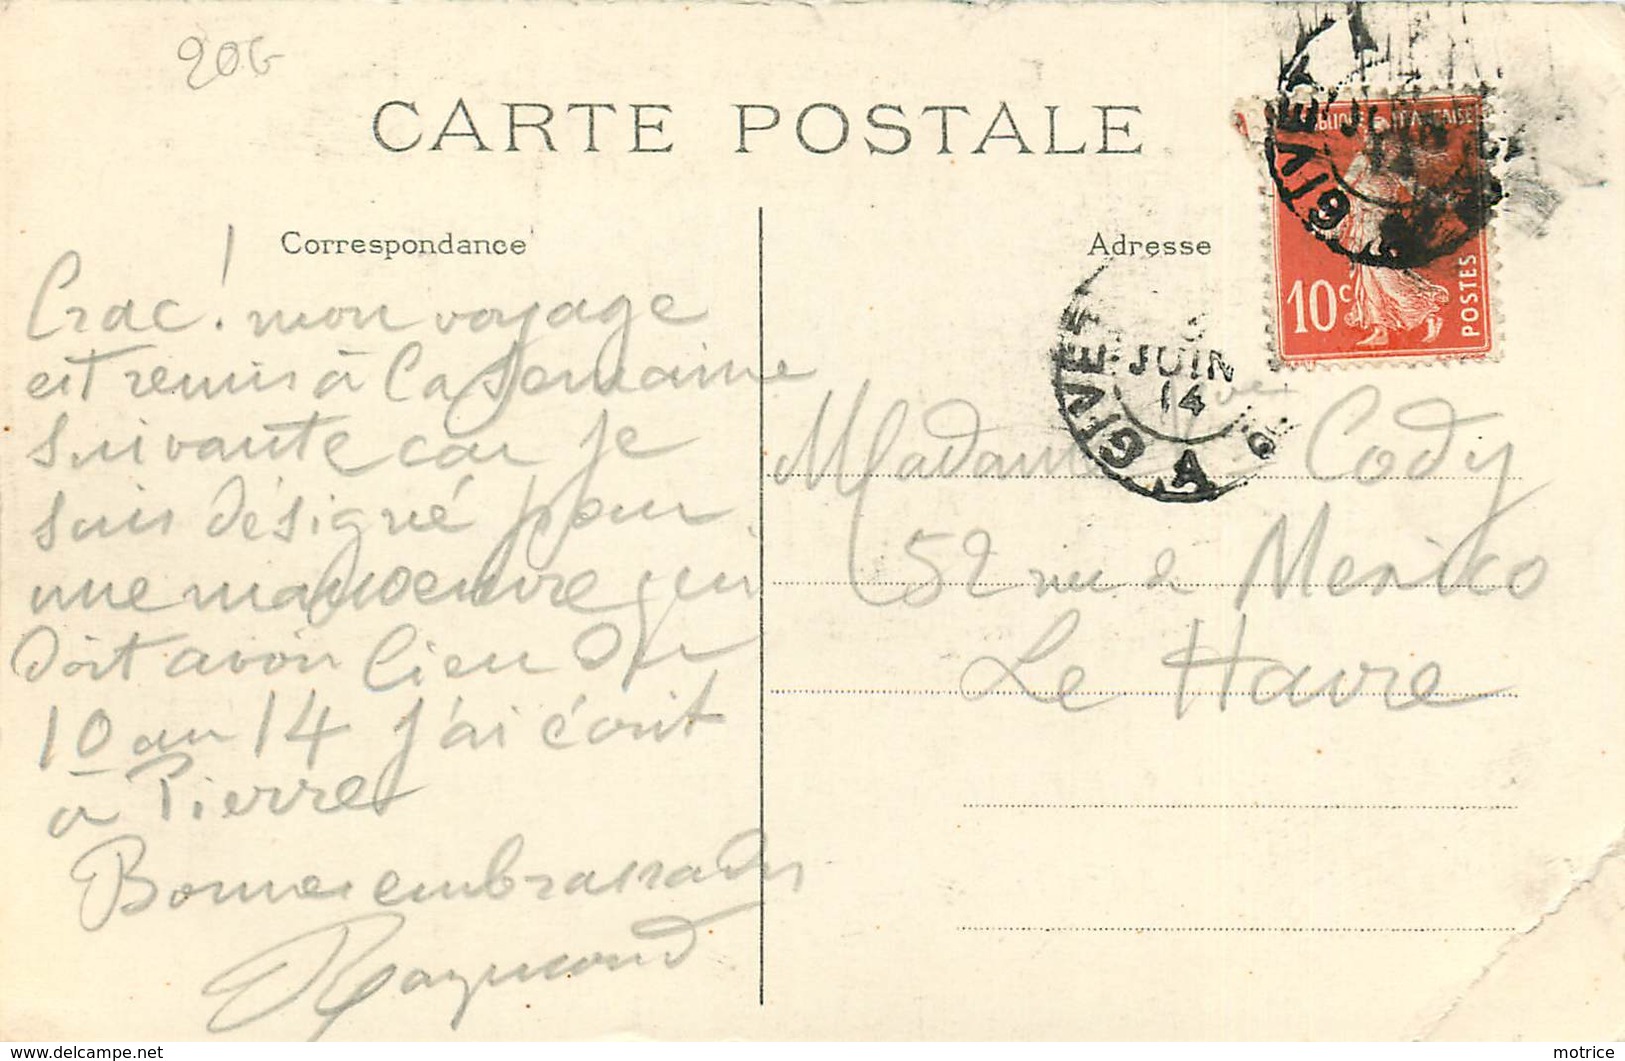 206
CARTE POSTALE
Correspondance
Crac! mon voyage
est remis à la semaine
suivante car je
suis désigné pour
une manoeuvre qui
doit avoir lieu du
10 au 14 j'ai écrit
à Pierre
Bonnes embrassades
Raymond
Adresse
FRANÇAISE
10c
POSTES
GIVET
JUIN
14
GIVET
JUIN
14
A
Madame Vve Cody
52 rue de Mexico
Le Havre
https://www.delcampe.net
motrice